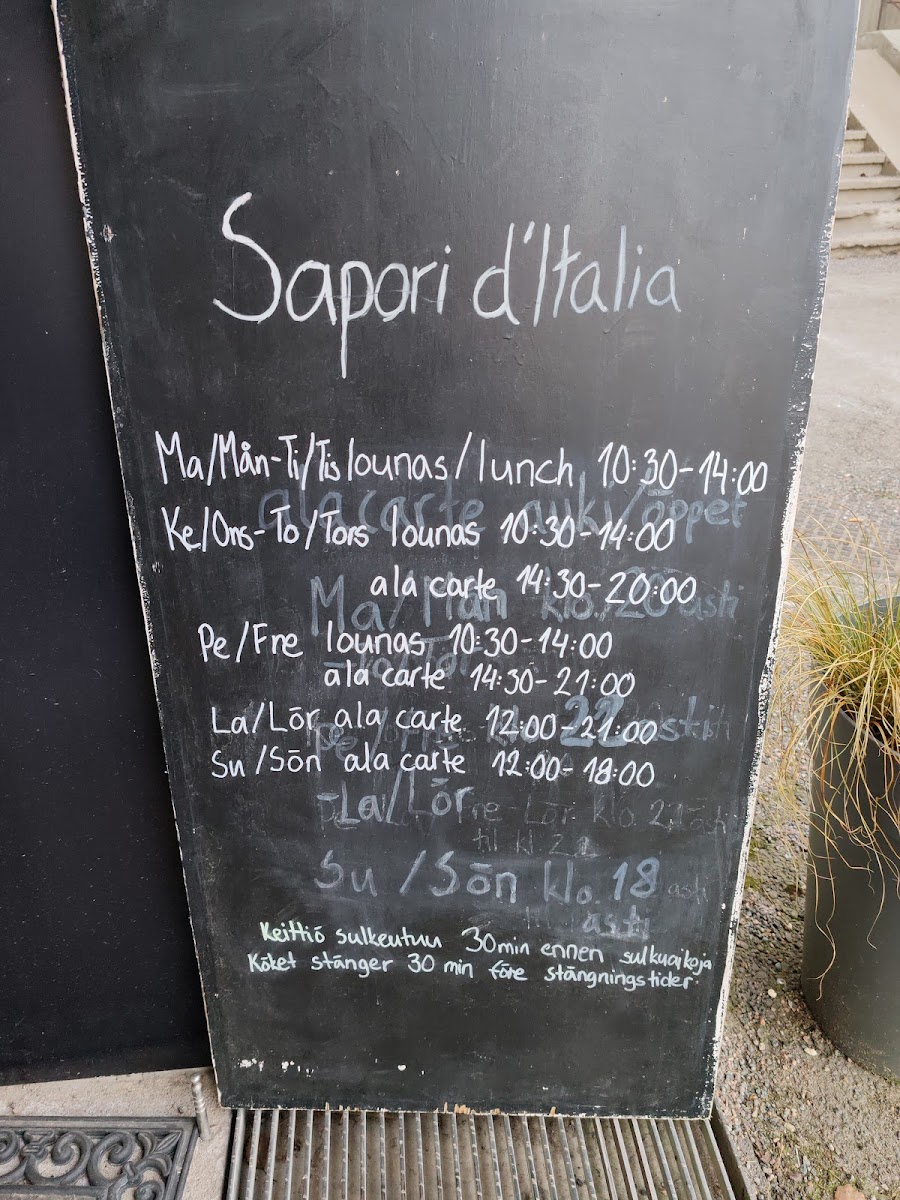 Sapori d'Italia
Ma/Mån-Ti/Tis lounas/lunch 10:30-14:00
ala carte auki/öppet
Ke/Ons-To/Tors lounas 10:30-14:00
ala carte 14:30-20:00
Ma/Mån klo. 20 asti
Pe/Fre lounas 10:30-14:00
ala carte 14:30-21:00
La/Lör ala carte 12:00-21:00
22
Su/Sön ala carte 12:00-18:00
-La/Lör
Su/Sön klo. 18 asti
asti
Keittiö sulkeutuu 30min ennen sulkuaikoja
Köket stänger 30 min före stängningstider.